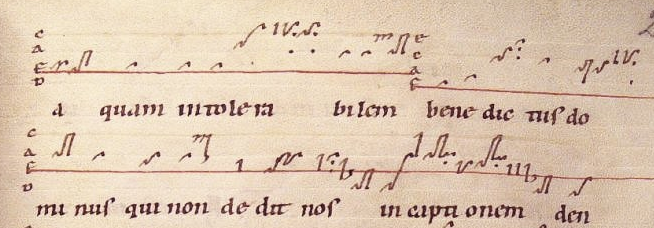 a quam in tole ra bilem bene dic tus do
mi nus qui non de dit nos in capti onem den